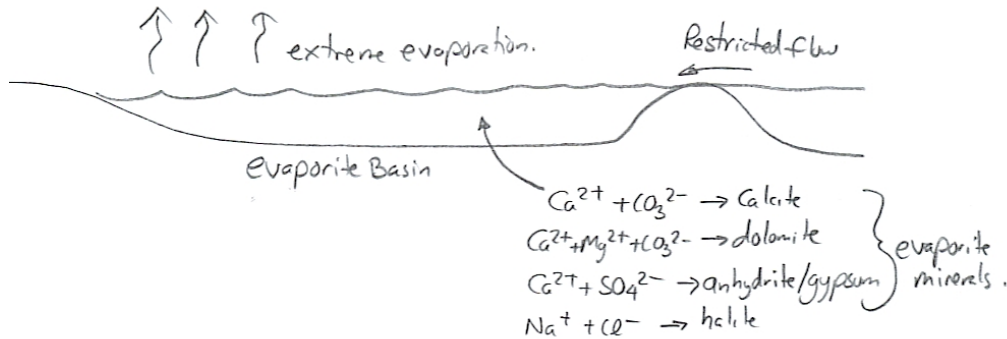 extreme evaporation.
Restricted flow
evaporite Basin
Ca²⁺ + CO₃²⁻ → Calcite
Ca²⁺+Mg²⁺+CO₃²⁻ → dolomite
Ca²⁺ + SO₄²⁻ → anhydrite/gypsum
Na⁺ + Cl⁻ → halite
evaporite
minerals.